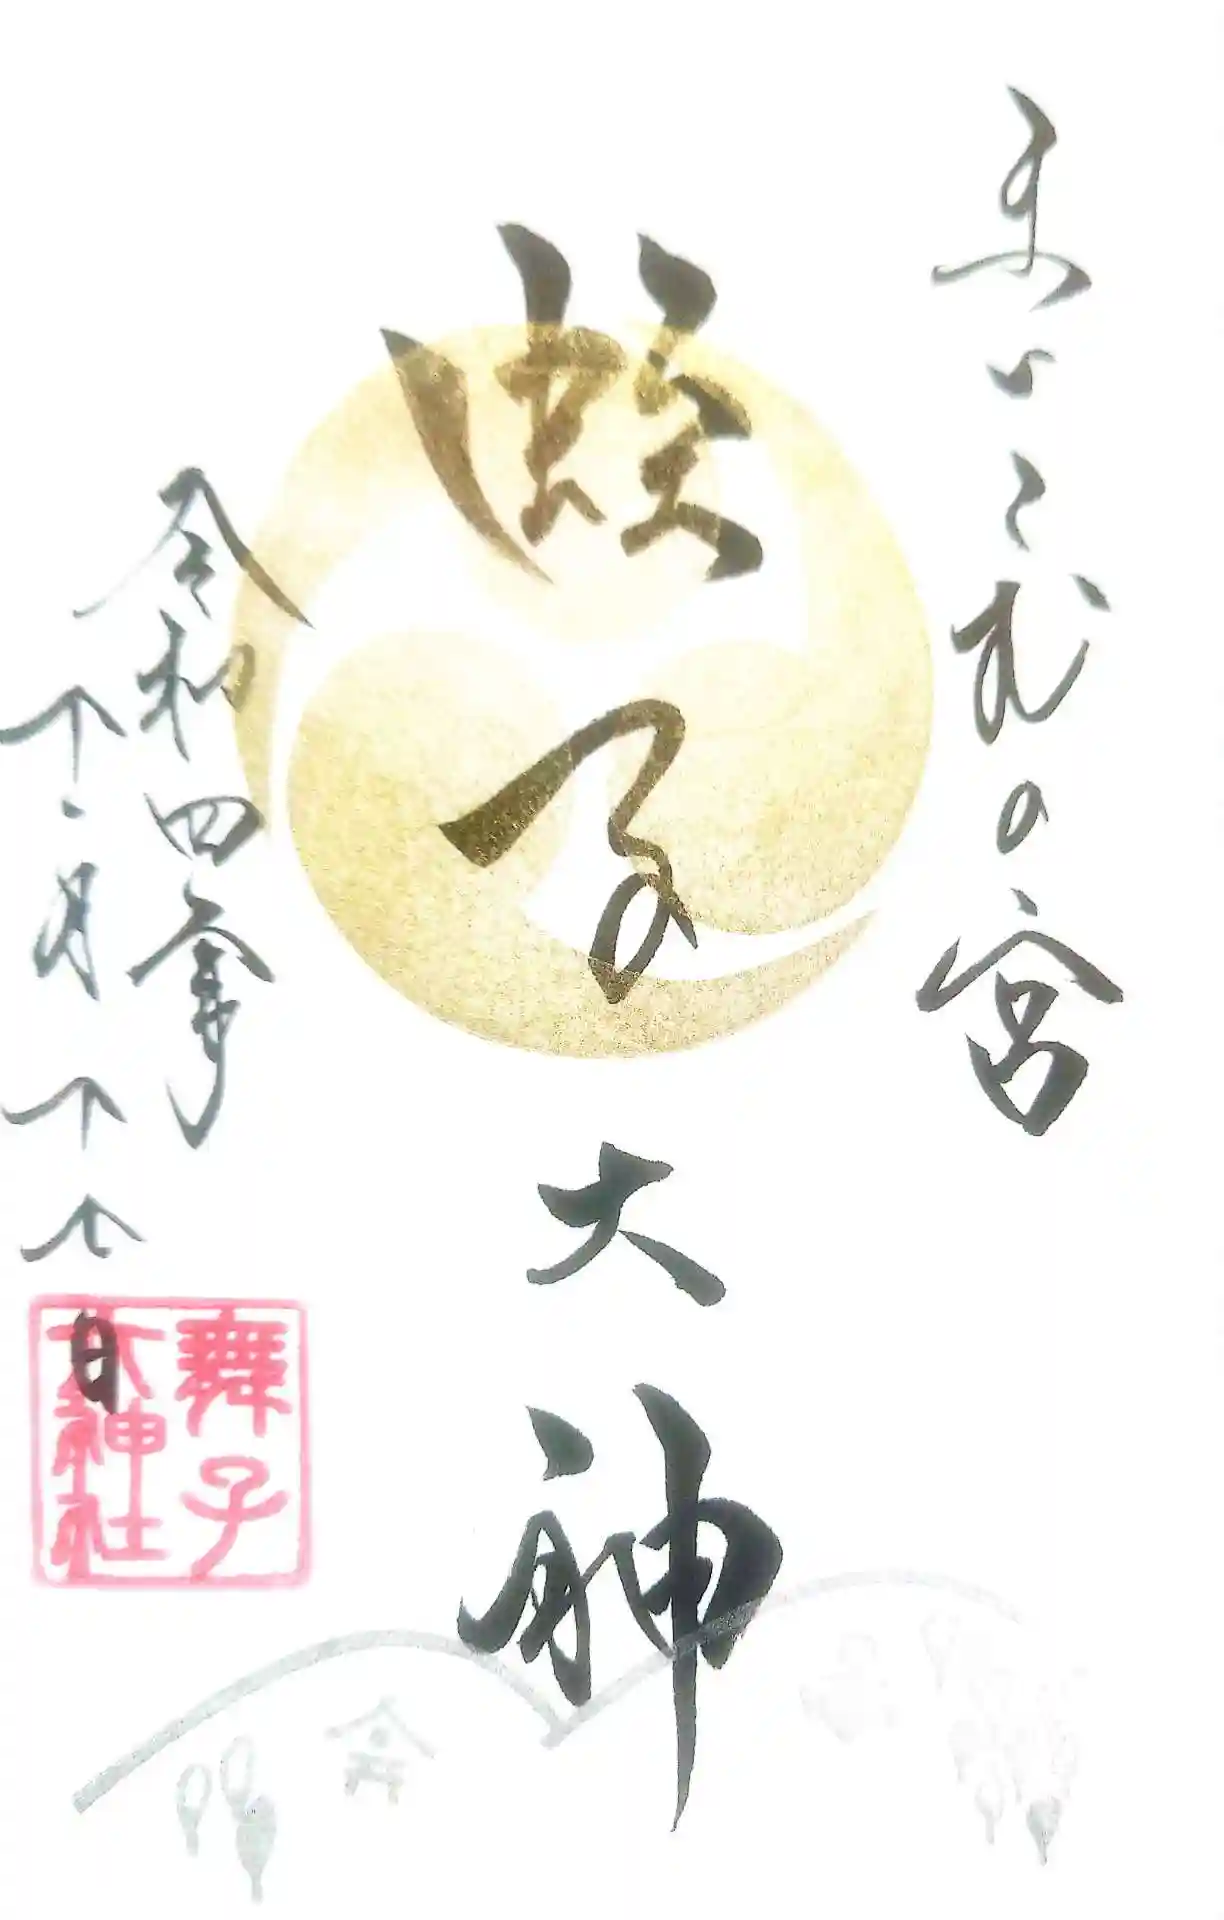 まいこむの宮
蛭子大神
令和四年
十一月十七日
舞子
六神社